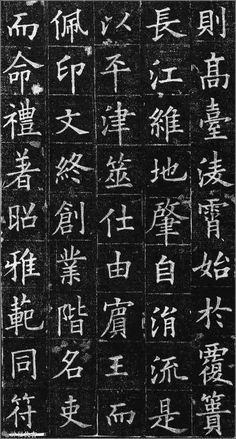 則髙臺淩霄始於覆簣
長江維地肇自涓流是
以平津筮仕由賓王而
佩印文終創業階名吏
而命禮著昭雅範同符